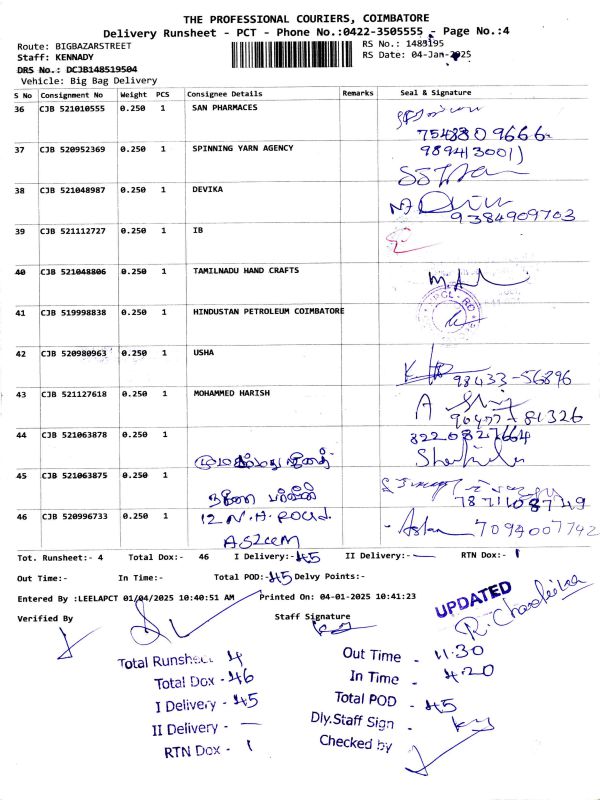 THE PROFESSIONAL COURIERS, COIMBATORE
Delivery Runsheet - PCT - Phone No.:0422-3505555 - Page No.:4
Route: BIGBAZARSTREET
RS No.: 1483195
Staff: KENNADY
RS Date: 04-Jan-2025
DRS No.: DCJB148519504
Vehicle: Big Bag Delivery
S No Consignment No Weight PCS Consignee Details Remarks Seal & Signature
36 CJB 521010555 0.250 1 SAN PHARMACES
7548809666
37 CJB 520952369 0.250 1 SPINNING YARN AGENCY 9894130011
38 CJB 521048987 0.250 1 DEVIKA
9384909703
39 CJB 521112727 0.250 1 IB
40 CJB 521048806 0.250 1 TAMILNADU HAND CRAFTS
41 CJB 519998838 0.250 1 HINDUSTAN PETROLEUM COIMBATORE
42 CJB 520980963 0.250 1 USHA
98433-56896
43 CJB 521127618 0.250 1 MOHAMMED HARISH
44 CJB 521063878 0.250 1
45 CJB 521063875 0.250 1
46 CJB 520996733 0.250 1 12 N.H. ROad.
ASLEEM
7094007742
Tot. Runsheet:- 4 Total Dox:- 46 I Delivery:- 45 II Delivery:- RTN Dox:- 1
Out Time:- In Time:- Total POD:- 45 Delvy Points:-
Entered By :LEELAPCT 01/04/2025 10:40:51 AM Printed On: 04-01-2025 10:41:23
Verified By Staff Signature
UPDATED
Total Runsheet 4
Total Dox - 46
I Delivery - 45
II Delivery - —
RTN Dox - 1
Out Time - 11:30
In Time - 4:20
Total POD - 45
Dly.Staff Sign -
Checked by